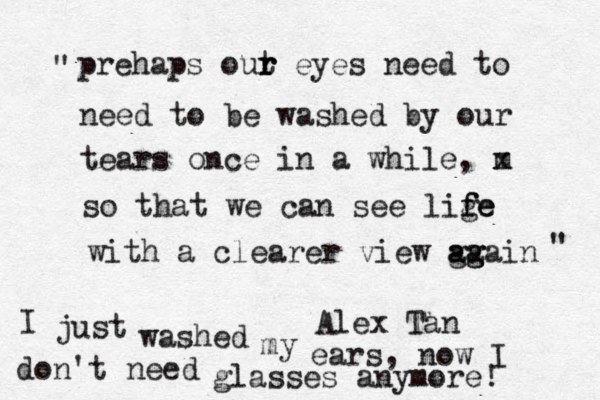 " prehaps our eyes need to
need to be washed by our
tears once in a while,
so that we can see life
with a clearer view again "
Alex Tan
I just washed my ears, now I
don't need glasses anymore!